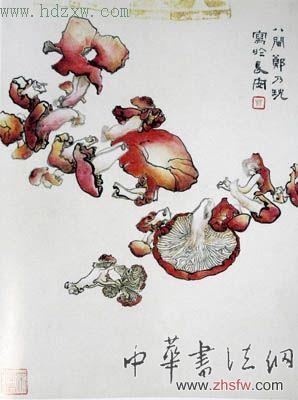 www.hdzxw.com
八閩鄭乃珖
寫於長安
中華書法網
www.zhsfw.com